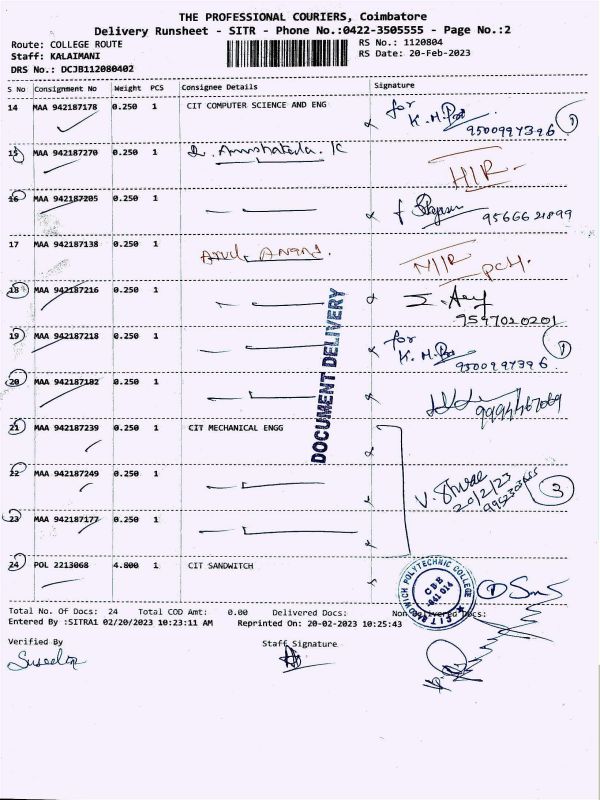 THE PROFESSIONAL COURIERS, Coimbatore
Delivery Runsheet - SITR - Phone No.:0422-3505555 - Page No.:2
Route: COLLEGE ROUTE RS No.: 1120804
Staff: KALAIMANI RS Date: 20-Feb-2023
DRS No.: DCJB112080402
S No Consignment No Weight PCS Consignee Details Signature
14 MAA 942187178 0.250 1 CIT COMPUTER SCIENCE AND ENG for
9500997396 1
15 MAA 942187270 0.250 1
16 MAA 942187205 0.250 1
9566621899
17 MAA 942187138 0.250 1 Anand.
18 MAA 942187216 0.250 1
9597020201
19 MAA 942187218 0.250 1 for
1
20 MAA 942187182 0.250 1
21 MAA 942187239 0.250 1 CIT MECHANICAL ENGG
22 MAA 942187249 0.250 1
20/2/23
3
23 MAA 942187177 0.250 1
24 POL 2213068 4.800 1 CIT SANDWITCH
DOCUMENT DELIVERY
POLYTECHNIC COLLEGE
CBE
641 014
Total No. Of Docs: 24 Total COD Amt: 0.00 Delivered Docs: Non Delivered Docs:
Entered By :SITRA1 02/20/2023 10:23:11 AM Reprinted On: 20-02-2023 10:25:43
Verified By Staff Signature